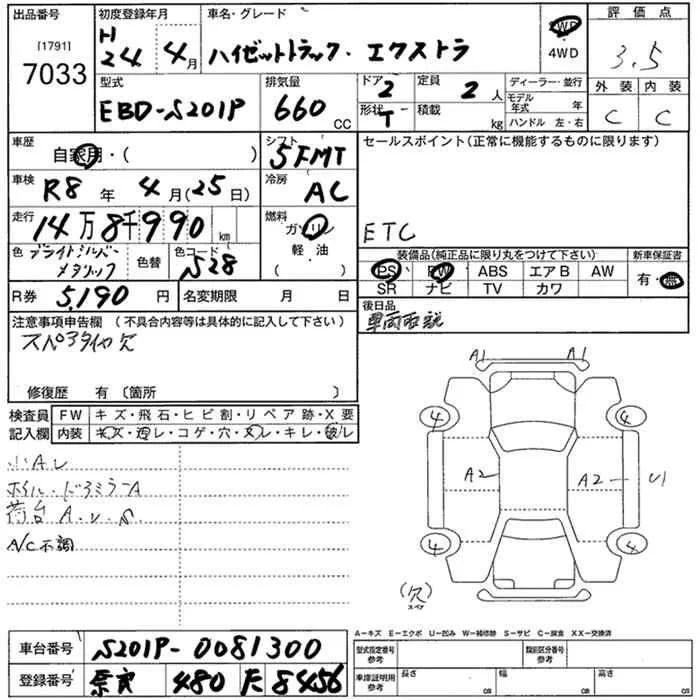 出品番号 初度登録年月 車名・グレード 評価点
[1791]
7033
H 24年 4月 ハイゼットトラック・エクストラ 2WD 4WD 3.5
型式 排気量 ドア 定員 ディーラー・並行 外装 内装
EBD-S201P 660 CC 2 2人 モデル年式 年 C C
形状 T 積載 kg ハンドル 左・右
車歴 自家用・( ) シフト 5FMT セールスポイント(正常に機能するものに限ります)
車検 R8年 4月(25日) 冷房 AC
走行 14万8千990km 燃料 ガソリン 軽・油 ( )
ETC
色 ブライトシルバーメタリック 色替 色コード S28
装備品(純正品に限り丸をつけて下さい) 新車保証書
PS PW ABS エアB AW 有・無
SR ナビ TV カワ
R券 5,190円 名変期限 月 日
後日品
注意事項申告欄 (不具合内容等は具体的に記入して下さい)
スペアタイヤ欠
修復歴 有 〔箇所 〕
検査員 FW キズ・飛石・ヒビ割・リペア跡・X要
記入欄 内装 キズ・汚レ・コゲ・穴・ヌレ・キレ・破レ
小A、レ
ホイル・ドアミラーA
荷台 A、レ、S
A/C不調
A1 A1
4 4
A2 A2 U1
4 4
(欠)
スペア
A-キズ E-エクボ U-凹み W-補修跡 S-サビ C-腐食 XX-交換済
車台番号 S201P-0081300 型式指定番号 参考 類別区分番号 参考
登録番号 奈良 480 8456 車庫証明用 参考 長さ cm 幅 cm 高さ cm